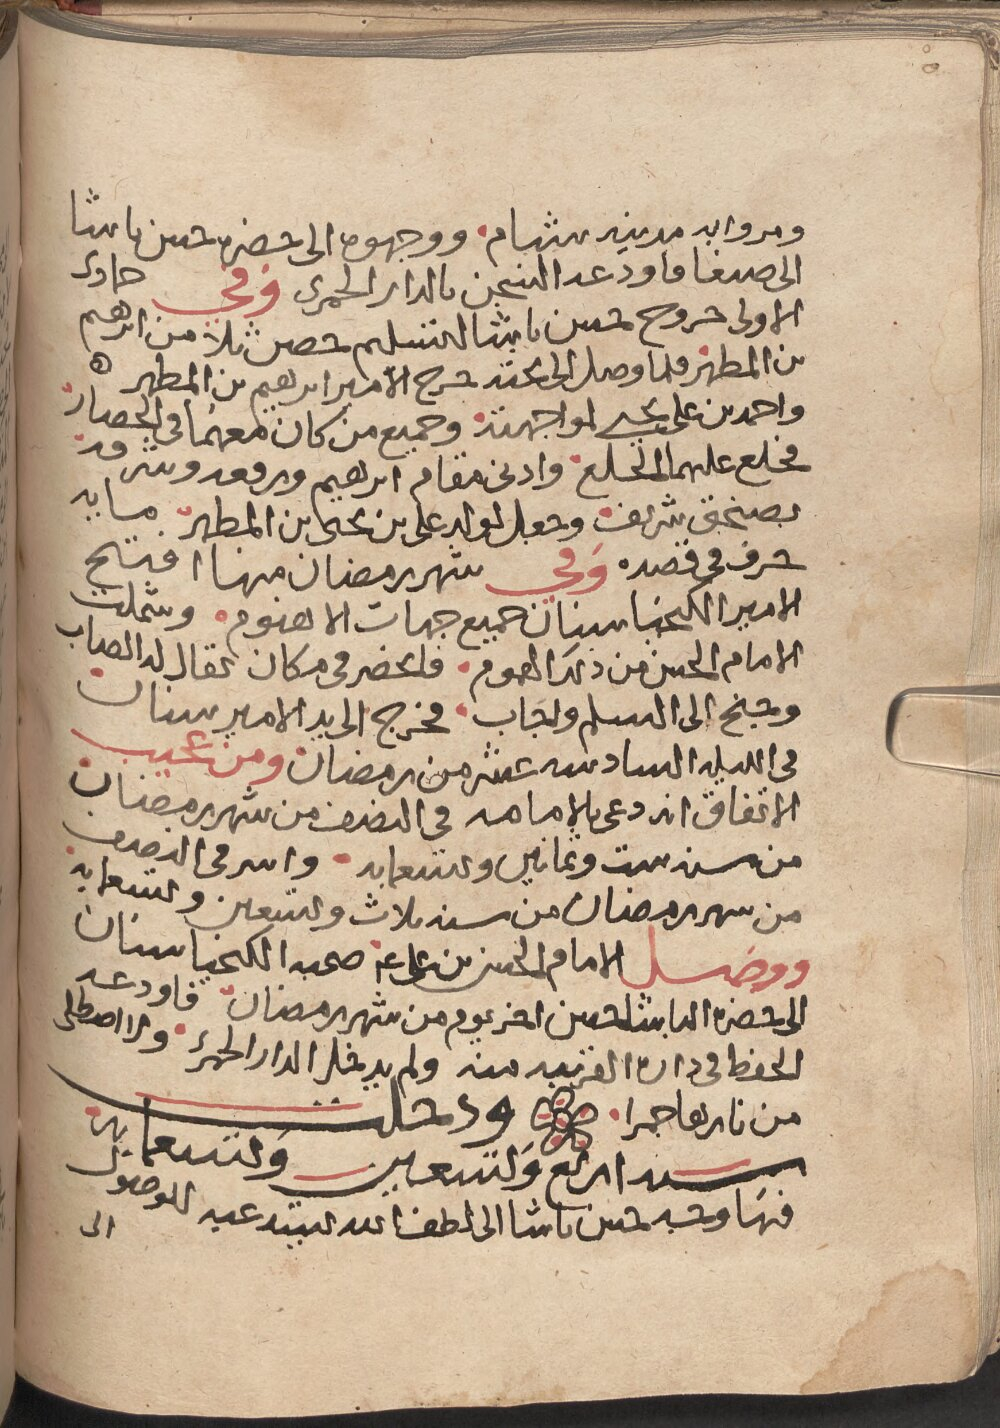 ومروا به مدينه شبام ووجهوه الى حضره حسن باشا
الى صنعا فاودعه السجن بالدار الحمرى وفي جمادى
الاولى خروج حسن باشا لتسليم حصن ثلا من ابرهيم
بن المطهر فلما وصل الى تحته خرج الأمير ابرهيم بن المطهر
واحمد بن على يحيى لمواجهته وجميع من كان معهما في الحصار
فخلع عليهما الخلع وادنى مقام ابرهيم ورفعه وشرفه
بصنجق شريف وجعل لولد على بن يحيى بن المطهر مايه
حرف في قصده وفي شهر رمضان منها افتتح
الامير الكيخيا سنان جميع جهات الاهنوم وشملت
الامام الحسن من ذلك الهموم فانحصر في مكان يقال له الصاب
وجنح الى السلم واجاب فخرج الى يد الامير سنان
في الليله السادسه عشر من رمضان ومن عجيب
الاتفاق انه دعى بالامامه في النصف من شهر رمضان
من سنه ست وثمانين وتسعمايه واسر في النصف
من شهر رمضان من سنه ثلاث وتسعين وتسعمايه
ووصل الامام الحسن بن على ع صحبه الكيخيا سنان
الى حضره الباشا حسن اخر يوم من شهر رمضان فاودعه
الحفظ في داره القريبه منه ولم يدخل الدار الحمرى ولا اصطلى
من نارها جمرا ودخلت
سنه اربع وتسعين وتسعمايه
فيها وجه حسن باشا الى لطف الله يستدعيه للوصول
الى